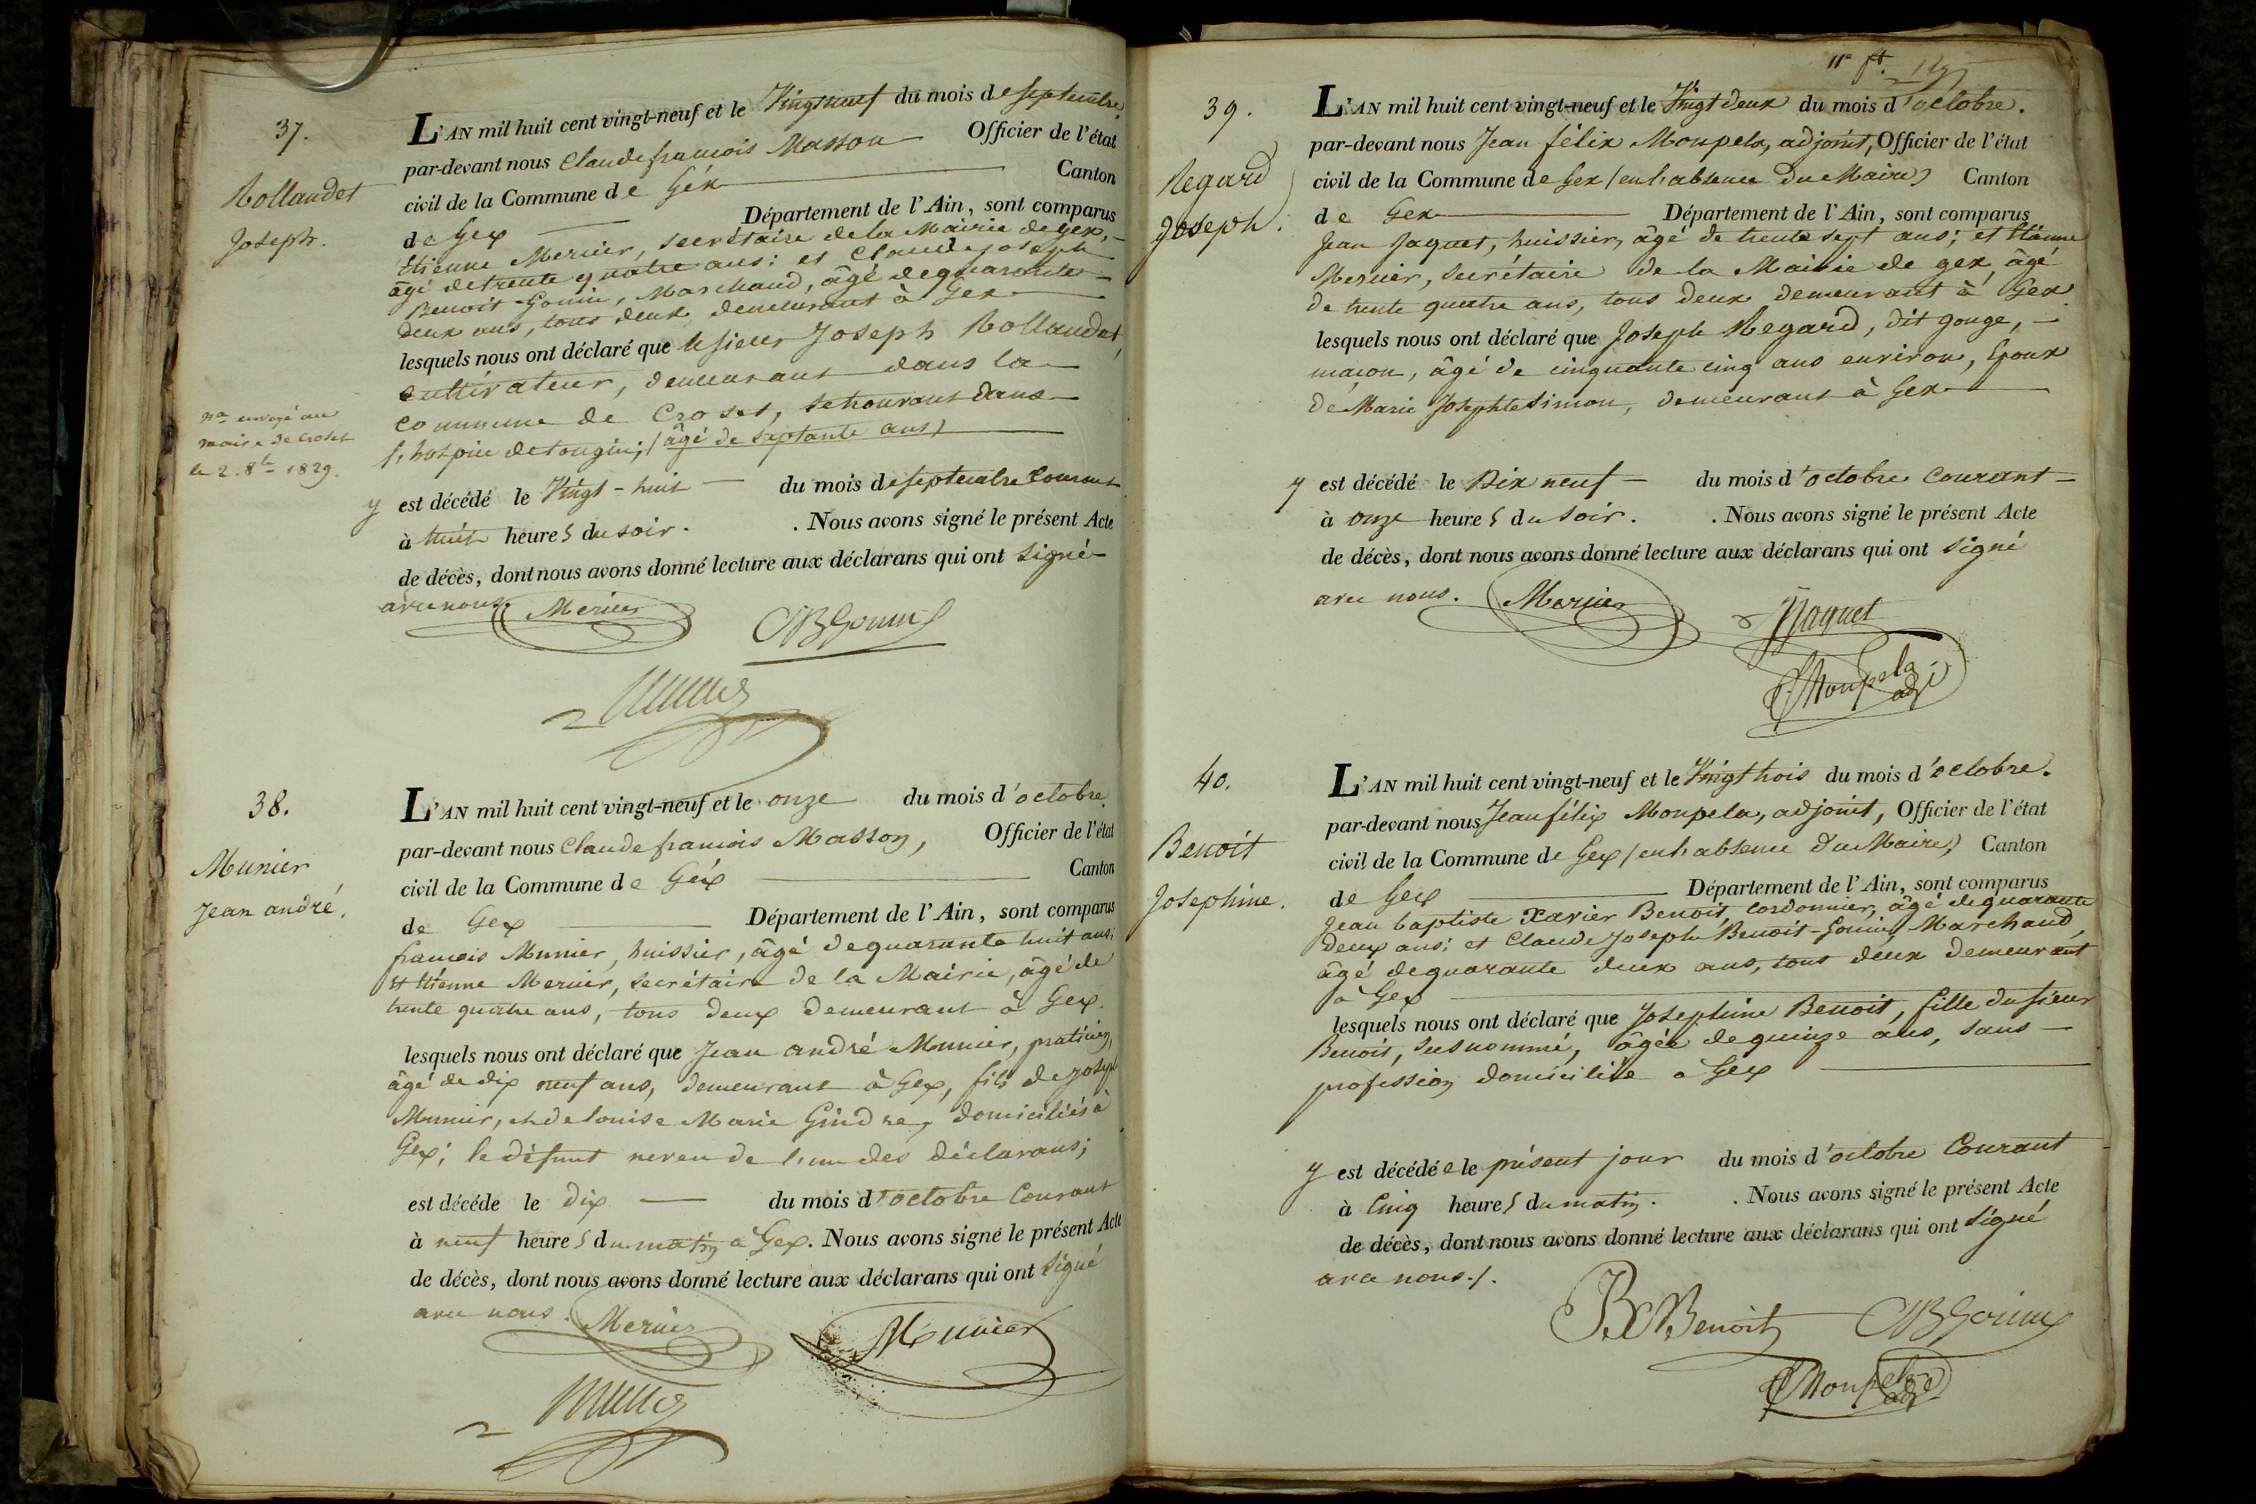 37.
Rollandet
Joseph.
L'AN mil huit cent vingt-neuf et le Vingtneuf du mois de septembre,
par-devant nous Claude françois Masson Officier de l'état
civil de la Commune de Géx Canton
de Gex Département de l'Ain, sont comparus
Etienne Mercier, secrétaire de la Mairie de Gex,
âgé de trente quatre ans; et Claude joseph
Benoit-Gonin, Marchand, âgé de quarante
deux ans, tous deux demeurant à Gex
lesquels nous ont déclaré que le sieur Joseph Rollandet,
cultivateur, demeurant dans la
commune de Crozet, se trouvant dans
l'hospice de tougin; (âgé de septante ans)
na envoyé au
maire de Crozet
le 2. 8bre 1829.
y est décédé le Vingt-huit du mois de septembre Courant
à huit heures du soir. . Nous avons signé le présent Acte
de décès, dont nous avons donné lecture aux déclarans qui ont signé
avec nous. Mercier
CJBGonin
38.
Munier
Jean andré.
L'AN mil huit cent vingt-neuf et le onze du mois d'octobre.
par-devant nous Claude françois Masson, Officier de l'état
civil de la Commune de Géx Canton
de Gex Département de l'Ain, sont comparus
françois Munier, huissier, âgé de quarante huit ans;
et Etienne Mercier, secrétaire de la Mairie, âgé de
trente quatre ans, tous deux demeurant à Gex.
lesquels nous ont déclaré que Jean andré Munier, praticien,
âgé de dix neuf ans, demeurant à Gex, fils de joseph
Munier, et de louise Marie Gindre, domiciliés à
Gex; le défunt neveu de l'un des déclarans;
est décéde le dix du mois d'octobre Courant
à neuf heures du matin à Gex. Nous avons signé le présent Acte
de décès, dont nous avons donné lecture aux déclarans qui ont signé
avec nous. Mercier Munier
39.
Regard
Joseph.
L'AN mil huit cent vingt-neuf et le Vingt deux du mois d'octobre.
par-devant nous Jean félix Monpela, adjoint, Officier de l'état
civil de la Commune de Gex (en l'absence du Maire) Canton
de Gex Département de l'Ain, sont comparus
Jean Jaquet, huissier, âgé de trente sept ans; et Etienne
Mercier, secrétaire de la Mairie de gex, âgé
de trente quatre ans, tous deux demeurant à Gex
lesquels nous ont déclaré que Joseph Regard, dit gouge,
maçon, âgé de cinquante cinq ans environ, Epoux
de Marie Josephte Simon, demeurant à Gex
y est décédé le Dix neuf du mois d'octobre Courant
à onze heures du soir. . Nous avons signé le présent Acte
de décès, dont nous avons donné lecture aux déclarans qui ont signé
avec nous. Mercier Jaquet
Monpela adj
40.
Benoit
Josephine.
L'AN mil huit cent vingt-neuf et le Vingt trois du mois d'octobre.
par-devant nous Jean félix Monpela, adjoint, Officier de l'état
civil de la Commune de Gex (en l'absence du Maire) Canton
de Gex Département de l'Ain, sont comparus
Jean baptiste Xavier Benoit, cordonnier, âgé de quarante
deux ans; et Claude Joseph Benoit-Gonin, Marchand,
âgé de quarante deux ans, tous deux demeurant
à Gex
lesquels nous ont déclaré que Josephine Benoit, fille du sieur
Benoit, susnommé, âgée de quinze ans, sans
profession domiciliée à Gex
y est décédée le présent jour du mois d'octobre Courant
à Cinq heures du matin. . Nous avons signé le présent Acte
de décès, dont nous avons donné lecture aux déclarans qui ont signé
avec nous./.
JBX Benoit CJBGonin
Monpela adj